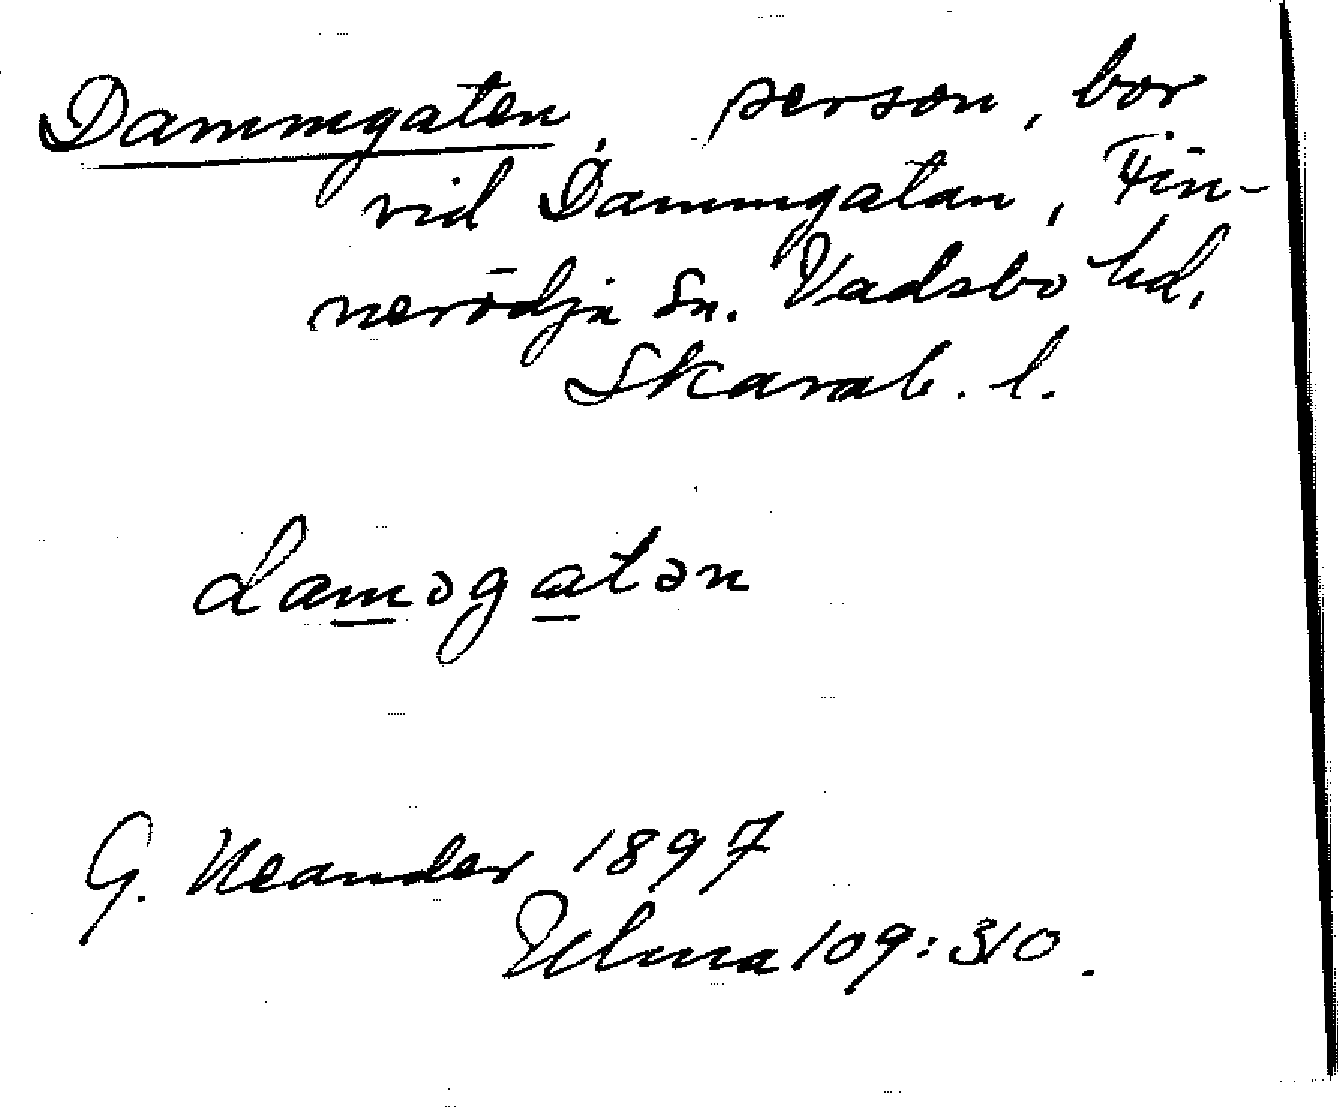 Dammgaten, person, bor
vid Dammgatan, Fin-
nerödja sn. Vadsbo hd,
Skarab. l.
daməgatən
G. Neander 1897
Ulma 109:310.